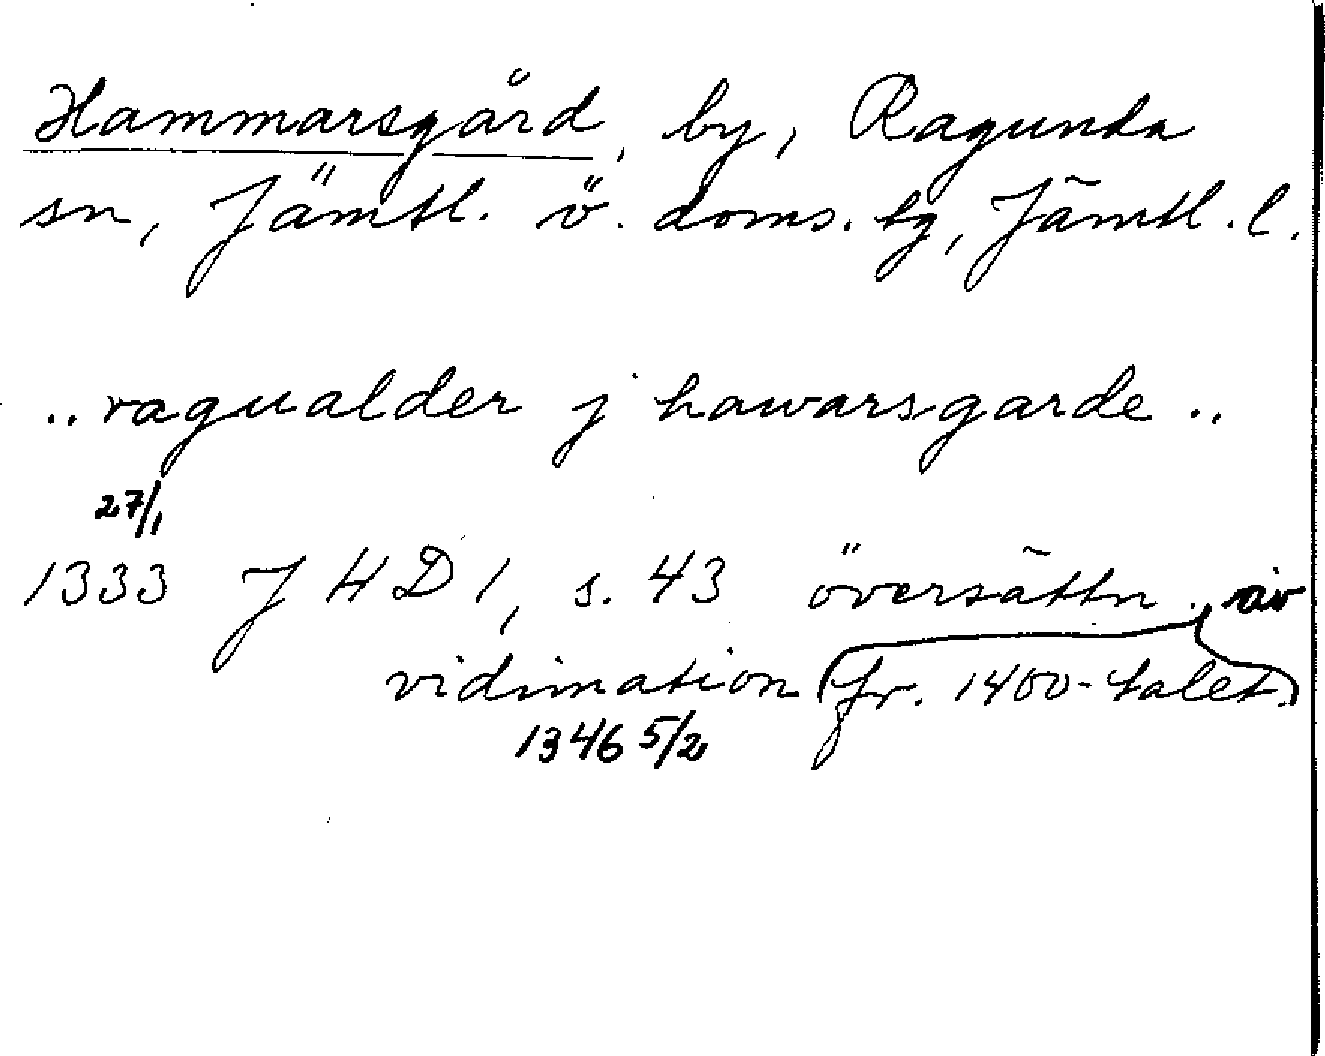 Hammarsgård, by, Ragunda
sn, Jämtl. ö. doms. tg, Jämtl. l.
.. ragualder j hawarsgarde ..
27/1
1333 J H D 1, s. 43 översättn. av
vidimation (fr. 1400-talet.)
1346 5/2